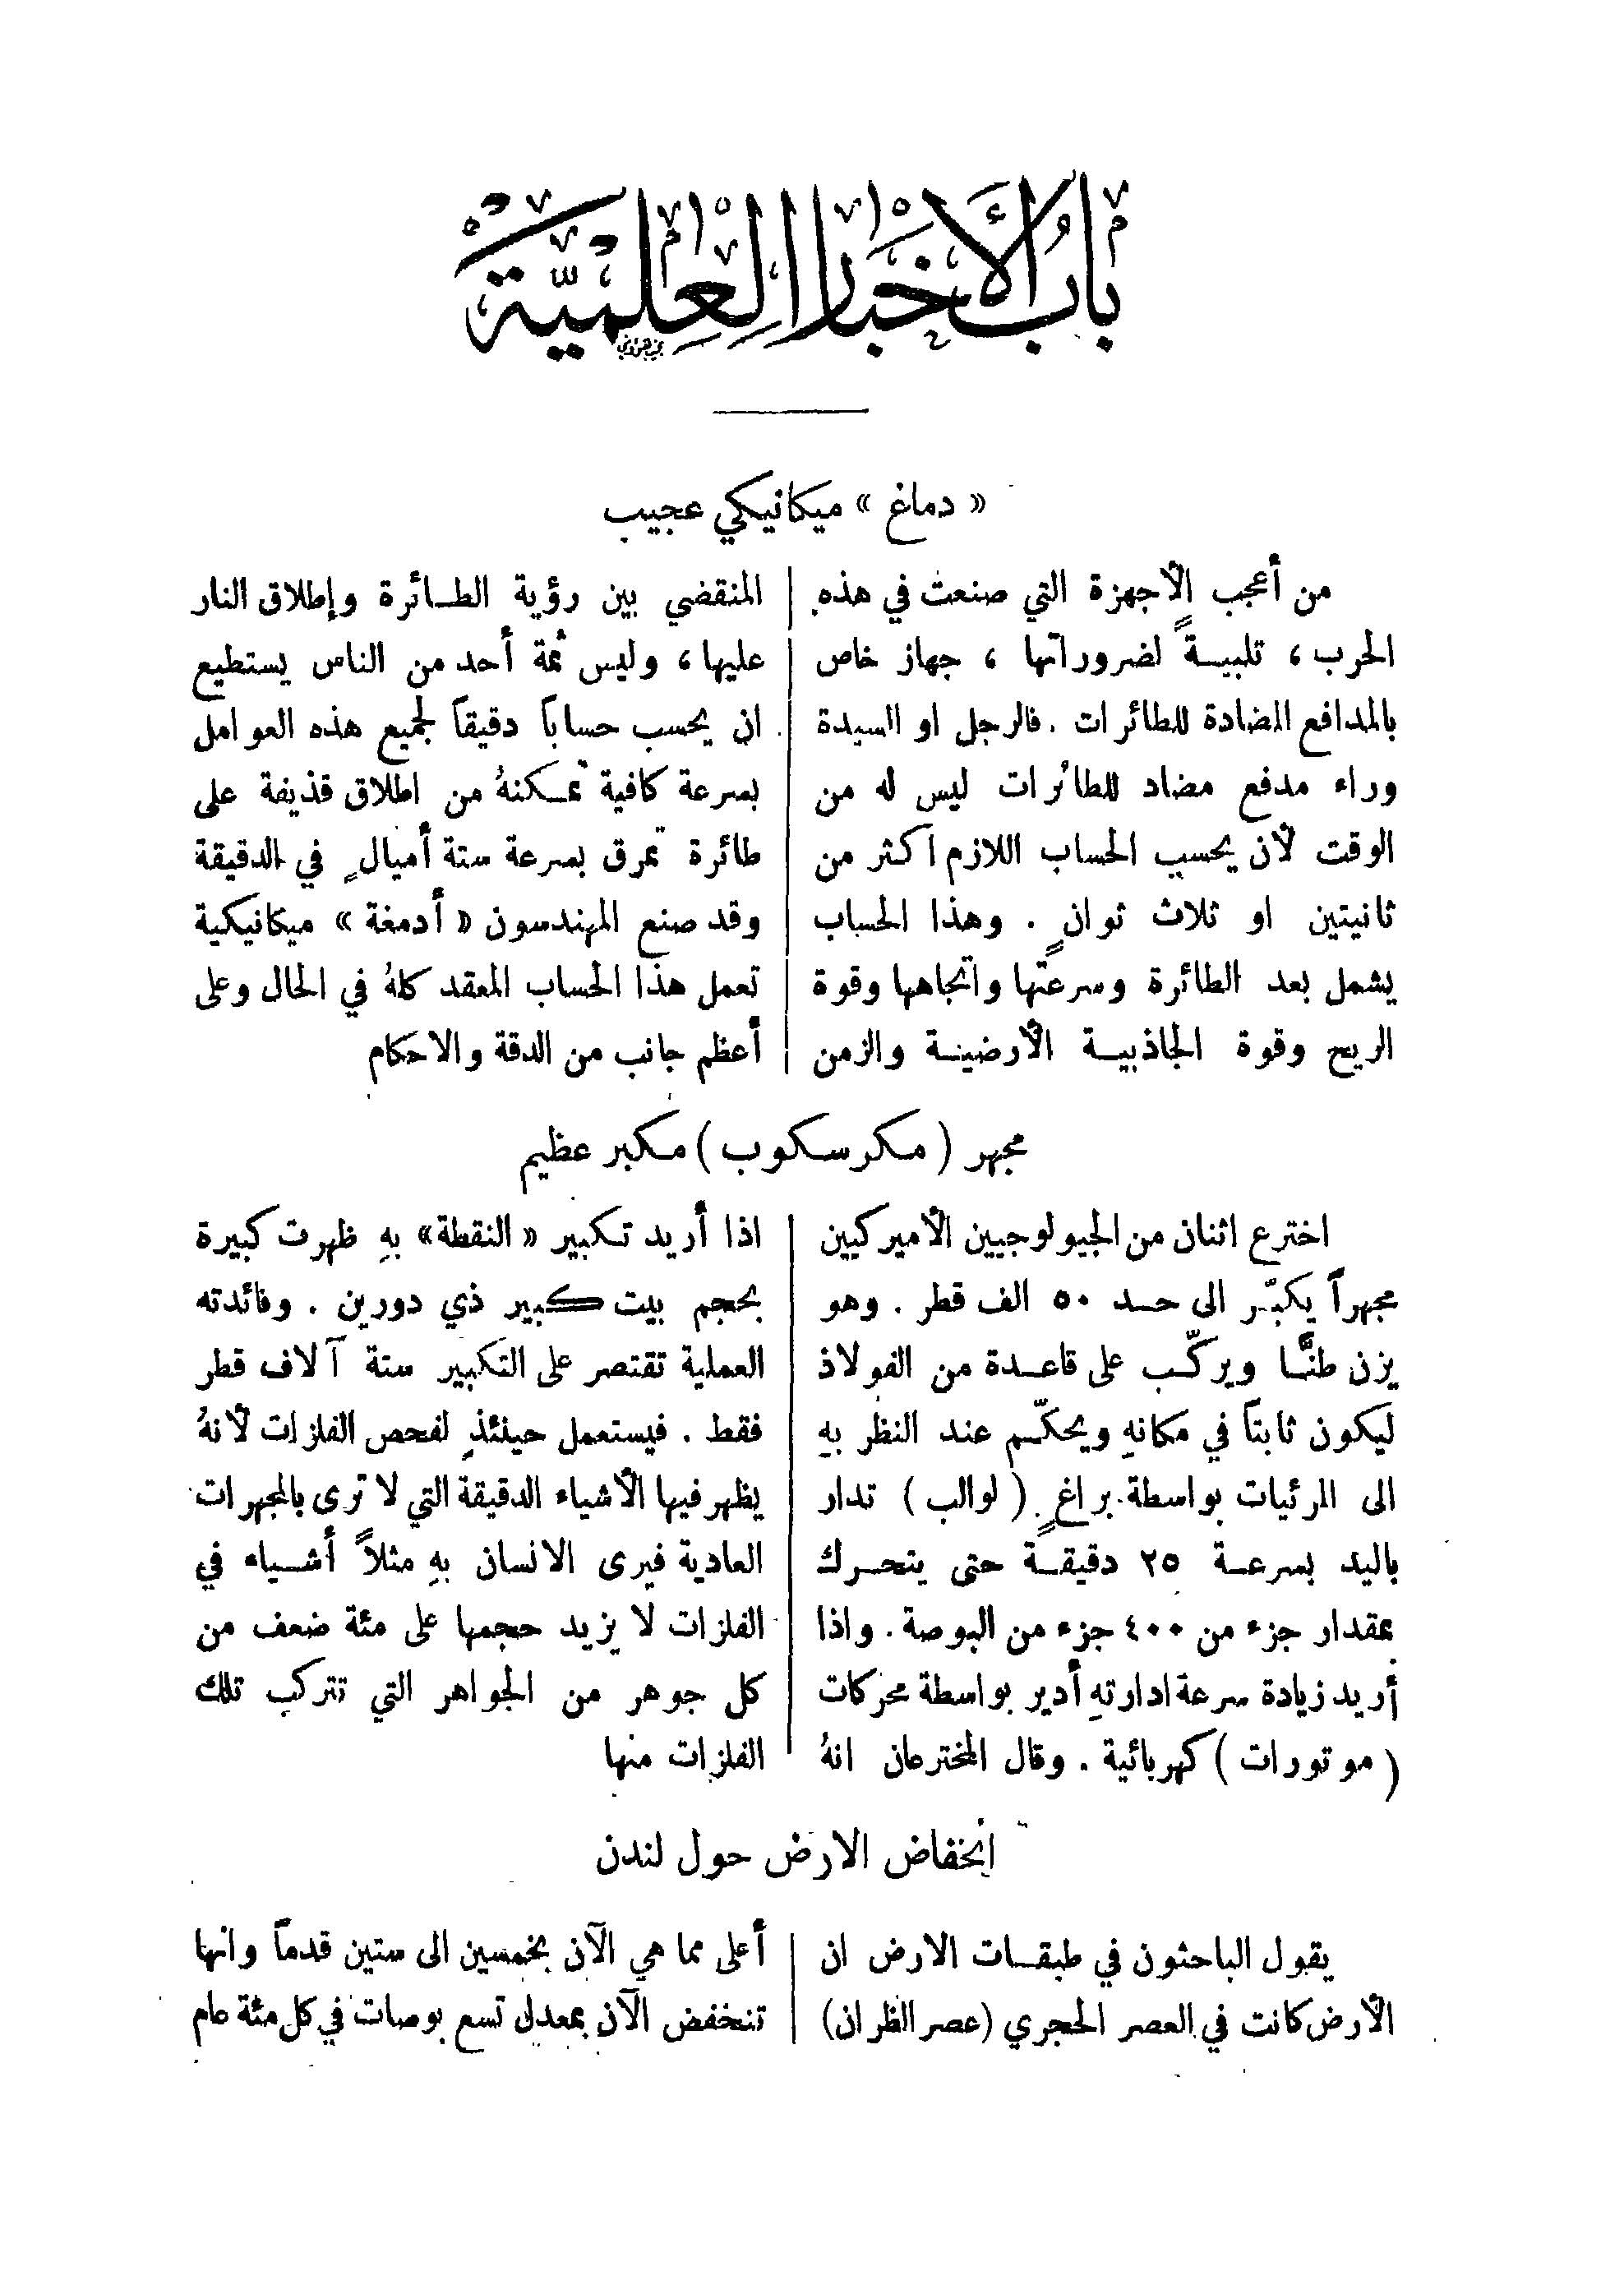 باب الأخبار العلمية
« دماغ » ميكانيكي عجيب
من أعجب الأجهزة التي صنعت في هذه
الحرب ، تلبيـةً لضروراتها ، جهاز خاص
بالمدافع المضادة للطائرات . فالرجل او السيدة
وراء مدفع مضاد للطائرات ليس له من
الوقت لأن يحسب الحساب اللازم اكثر من
ثانيتين او ثلاث ثوانٍ . وهذا الحساب
يشمل بعد الطائرة وسرعتها واتجاهها وقوة
الريح وقوة الجاذبيـة الأرضيـة والزمن
المنقضي بين رؤية الطـائرة وإطلاق النار
عليها ، وليس ثمة أحد من الناس يستطيع
ان يحسب حساباً دقيقاً لجميع هذه العوامل
بسرعة كافية تمـكنهُ من اطلاق قذيفة على
طائرة تمرق بسرعة ستة أميالٍ في الدقيقة
وقد صنع المهندسون « أدمغة » ميكانيكية
تعمل هذا الحساب المعقد كلهُ في الحال وعلى
أعظم جانب من الدقة والاحكام
مجهر ( مكرسكوب ) مكبر عظيم
اخترع اثنان من الجيولوجيين الأميركيين
مجهراً يكبّـر الى حـد ٥٠ الف قطر . وهو
يزن طنًّـا ويركّـب على قاعـدة من الفولاذ
ليكون ثابتاً في مكانهِ ويحكّـم عند النظر بهِ
الى المرئيات بواسطة براغٍ ( لوالب ) تدار
باليد بسرعـة ٢٥ دقيقـة حتى يتحـرك
بمقدار جزء من ٤٠٠ جزء من البوصة . واذا
أريد زيادة سرعة ادارتهِ أدير بواسطة محركات
( موتورات ) كهربائية . وقال المخترعان انهُ
اذا أريد تكبير « النقطة » بهِ ظهرت كبيرة
بحجم بيت كبير ذي دورين . وفائدته
العملية تقتصر على التكبير ستة آلاف قطر
فقط . فيستعمل حينئذٍ لفحص الفلزات لأنهُ
يظهر فيها الأشياء الدقيقة التي لا ترى بالمجهرات
العادية فيرى الانسان بهِ مثلاً أشـياء في
الفلزات لا يزيد حجمها على مئة ضعف من
كل جوهر من الجواهر التي تتركب تلك
الفلزات منها
انخفاض الارض حول لندن
يقول الباحثون في طبقـات الارض ان
الأرض كانت في العصر الحجري (عصر الظران)
أعلى مما هي الآن بخمسين الى ستين قدماً وانها
تنخفض الآن بمعدل تسع بوصات في كل مئة عام